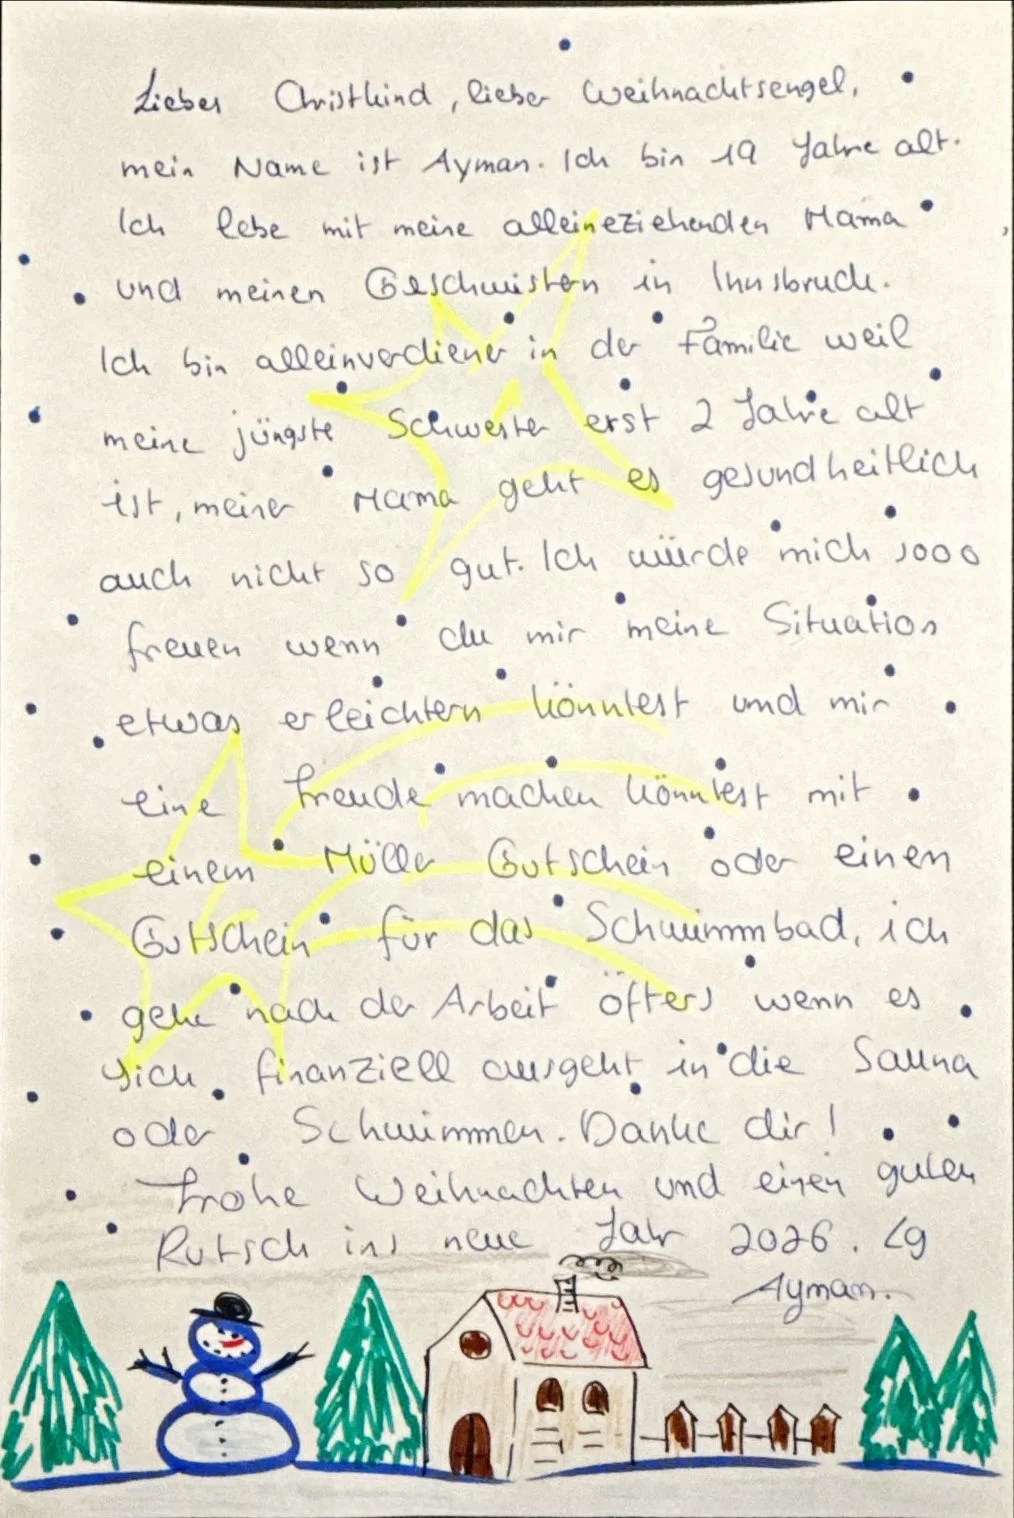 Liebes Christkind, lieber Weihnachtsengel,
mein Name ist Ayman. Ich bin 19 Jahre alt.
Ich lebe mit meine alleineziehenden Mama
und meinen Geschwistern in Innsbruck.
Ich bin alleinverdiener in der Familie weil
meine jüngste Schwester erst 2 Jahre alt
ist, meiner Mama geht es gesundheitlich
auch nicht so gut. Ich würde mich 1000
freuen wenn du mir meine Situation
etwas erleichtern könntest und mir
eine Freude machen könntest mit
einem Müller Gutschein oder einen
Gutschein für das Schwimmbad, ich
gehe nach der Arbeit öfters wenn es
sich finanziell ausgeht in die Sauna
oder Schwimmen. Danke dir!
Frohe Weihnachten und einen guten
Rutsch ins neue Jahr 2026. Lg
Ayman.